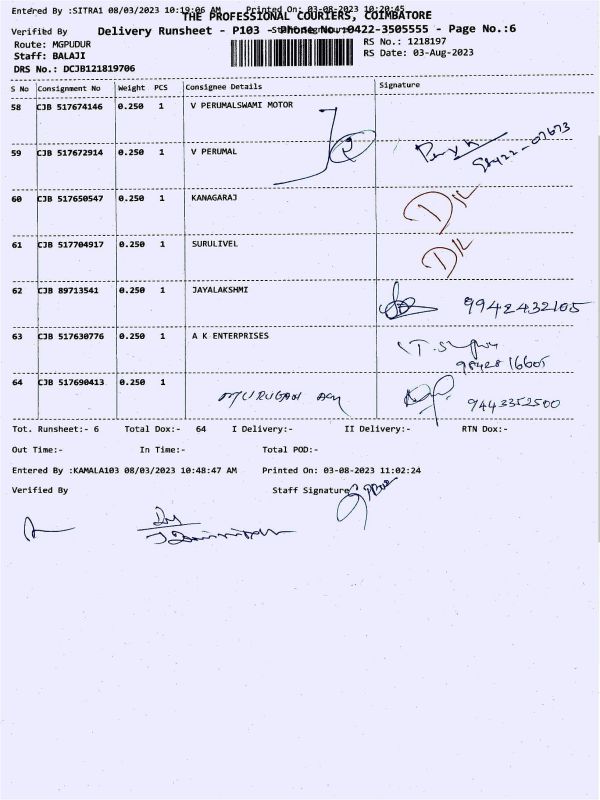 Entered By :SITRA1 08/03/2023 10:19:06 AM Printed On: 03-08-2023 10:20:45
THE PROFESSIONAL COURIERS, COIMBATORE
Verified By Delivery Runsheet - P103 - Phone No.:0422-3505555 - Page No.:6
Staff Signature
Route: MGPUDUR RS No.: 1218197
Staff: BALAJI RS Date: 03-Aug-2023
DRS No.: DCJB121819706
S No Consignment No Weight PCS Consignee Details Signature
58 CJB 517674146 0.250 1 V PERUMALSWAMI MOTOR
59 CJB 517672914 0.250 1 V PERUMAL 98422-07673
60 CJB 517650547 0.250 1 KANAGARAJ D/L
61 CJB 517704917 0.250 1 SURULIVEL D/L
62 CJB 89713541 0.250 1 JAYALAKSHMI 9942432105
63 CJB 517630776 0.250 1 A K ENTERPRISES
98428 16605
64 CJB 517690413 0.250 1 MURUGAN 9443352500
Tot. Runsheet:- 6 Total Dox:- 64 I Delivery:- II Delivery:- RTN Dox:-
Out Time:- In Time:- Total POD:-
Entered By :KAMALA103 08/03/2023 10:48:47 AM Printed On: 03-08-2023 11:02:24
Verified By Staff Signature